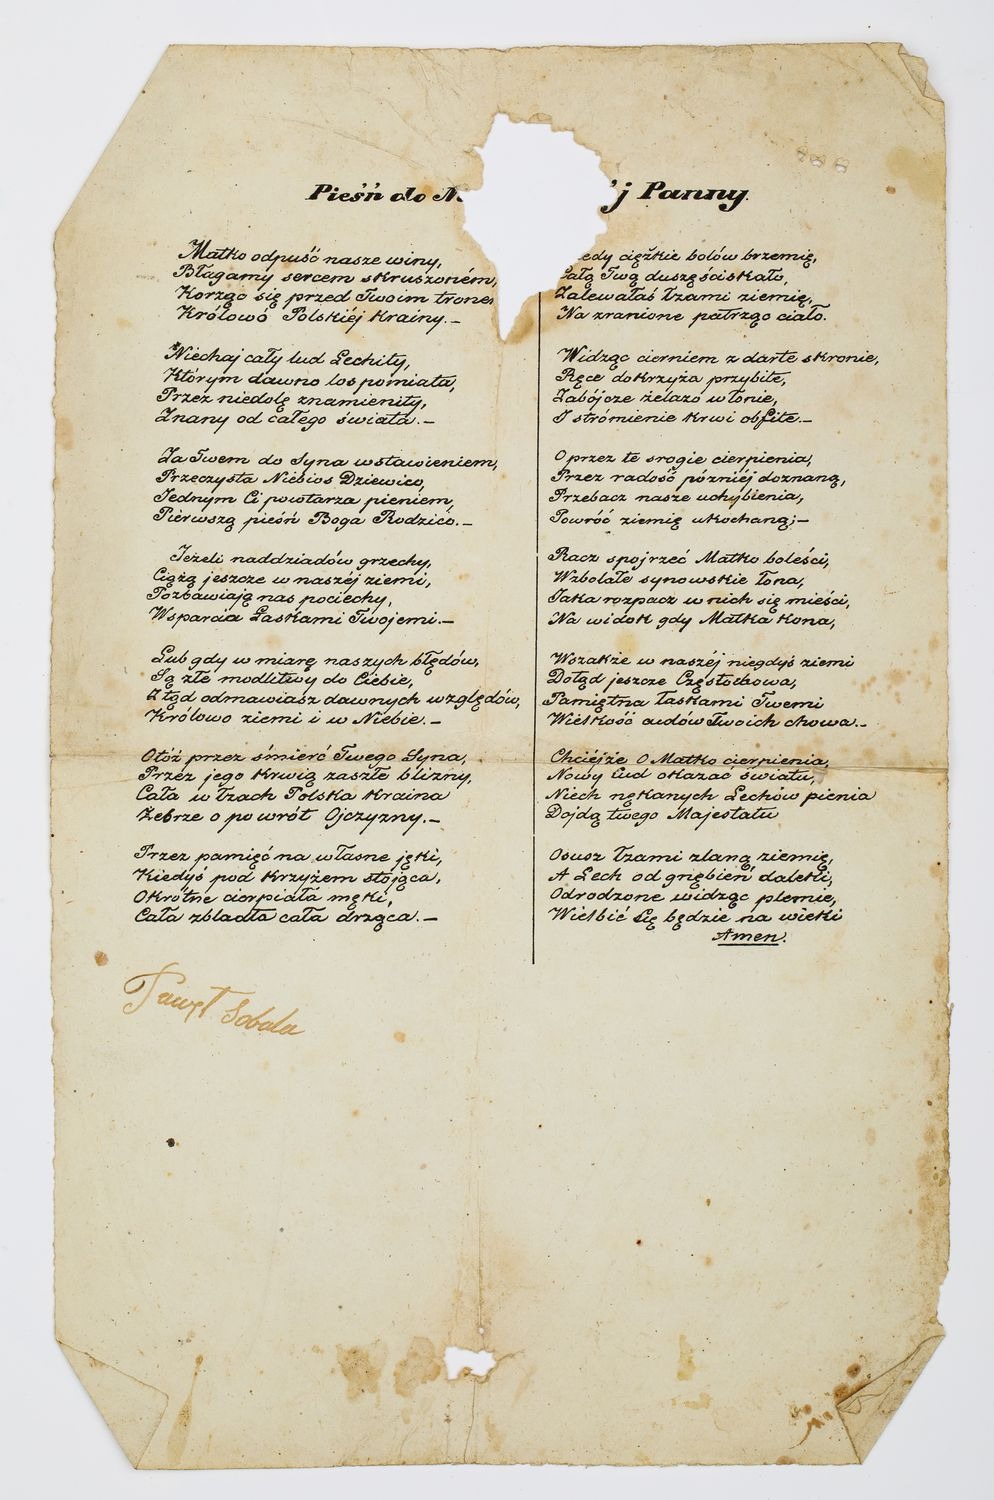 Pieśń do 'j Panny.
Matko odpuść nasze winy,
Błagamy sercem skruszoném,
Korząc się przed Twoim
Królowó Polskiéj Krainy.–
Niechaj cały lud Lechity,
Którym dawno los pomiata,
Przez niedolę znamienity,
Znany od całego świata.–
Za Twem do Syna wstawieniem,
Przeczysta Niebios Dziewico,
Jednym Ci powtarza pieniem,
Piérwszą pieśń Boga Rodzico.–
Jeżeli naddziadów grzechy,
Ciążą jeszcze w naszéj ziemi,
Pozbawiają nas pociechy,
Wsparcia Łaskami Twojemi.–
Lub gdy w miarę naszych błędów,
Są złe modlitwy do Ciebie,
Ztąd odmawiasz dawnych względów,
Królowo ziemi i w Niebie.–
Otóż przez śmierć Twego Syna,
Przez jego krwią zaszłe blizny,
Cała w łzach Polska Kraina
Żebrze o powrót Ojczyzny.–
Przez pamięć na własne jęki,
Kiedyś pod krzyżem stojąca,
Okrótne cierpiała męki,
Cała zbladła cała drząca.–
ciężkie bolów brzemię,
Całą Twą duszę ściskało,
Zalewałaś łzami ziemię,
Na zranione patrząc ciało.
Widząc cierniem zdarte skronie,
Ręce do Krzyża przybite,
Zabójcze żelazo w łonie,
I strómienie Krwi obfite.–
O przez te srogie cierpienia,
Przez radość późniéj doznaną,
Przebacz nasze uchybienia,
Powróć ziemię ukochaną;–
Racz spojrzeć Matko boleści,
Wzbolałe synowskie łona,
Jaka rozpacz w nich się mieści,
Na widok gdy Matka kona,
Wszakże w naszéj niegdyś ziemi
Dotąd jeszcze Częstochowa,
Pamiętna łaskami Twemi
Wielkość cudów Twoich chowa.–
Chciéjże O Matko cierpienia,
Nowy Cud okazać światu,
Niech nękanych Lechów pienia
Dojdą twego Majestatu
Osusz łzami zlaną ziemię,
A Lech od gnębień daleki,
Odrodzone widząc plemie,
Wielbić Cię będzie na wieki
Amen.
Paweł Sobala